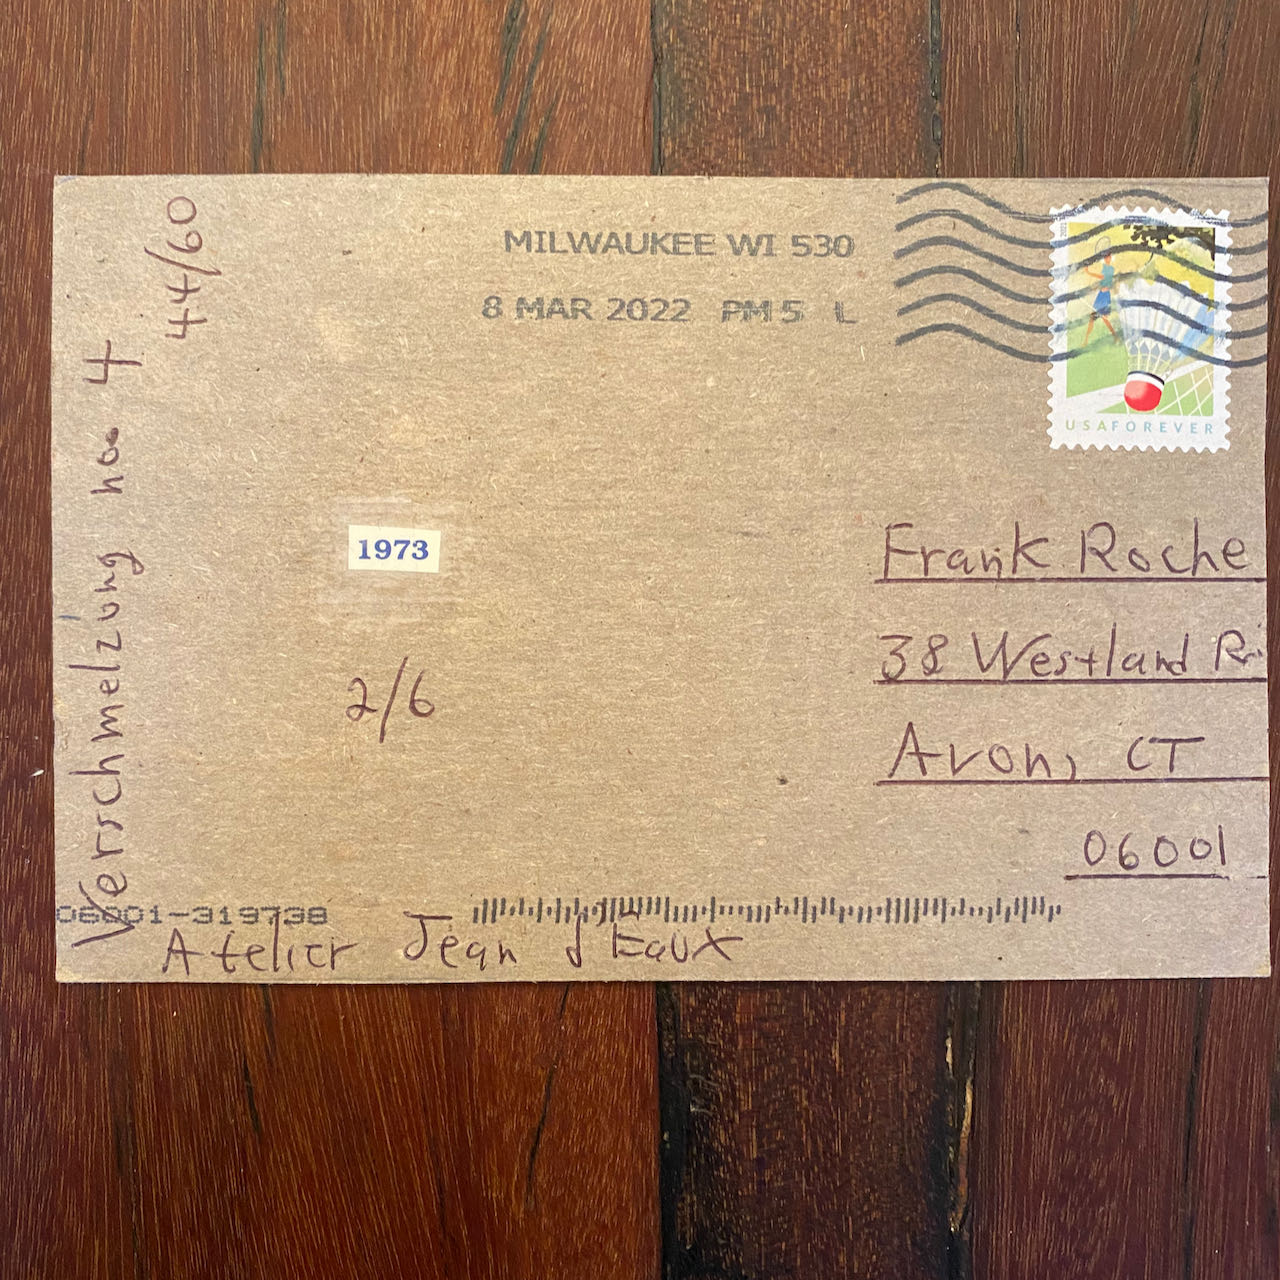 MILWAUKEE WI 530
8 MAR 2022 PM 5 L
USAFOREVER
44/60
Verschmelzung no. 4
1973
2/6
Frank Roche
38 Westland R
Avon, CT
06001
06001-319738
Atelier Jean d'Eaux